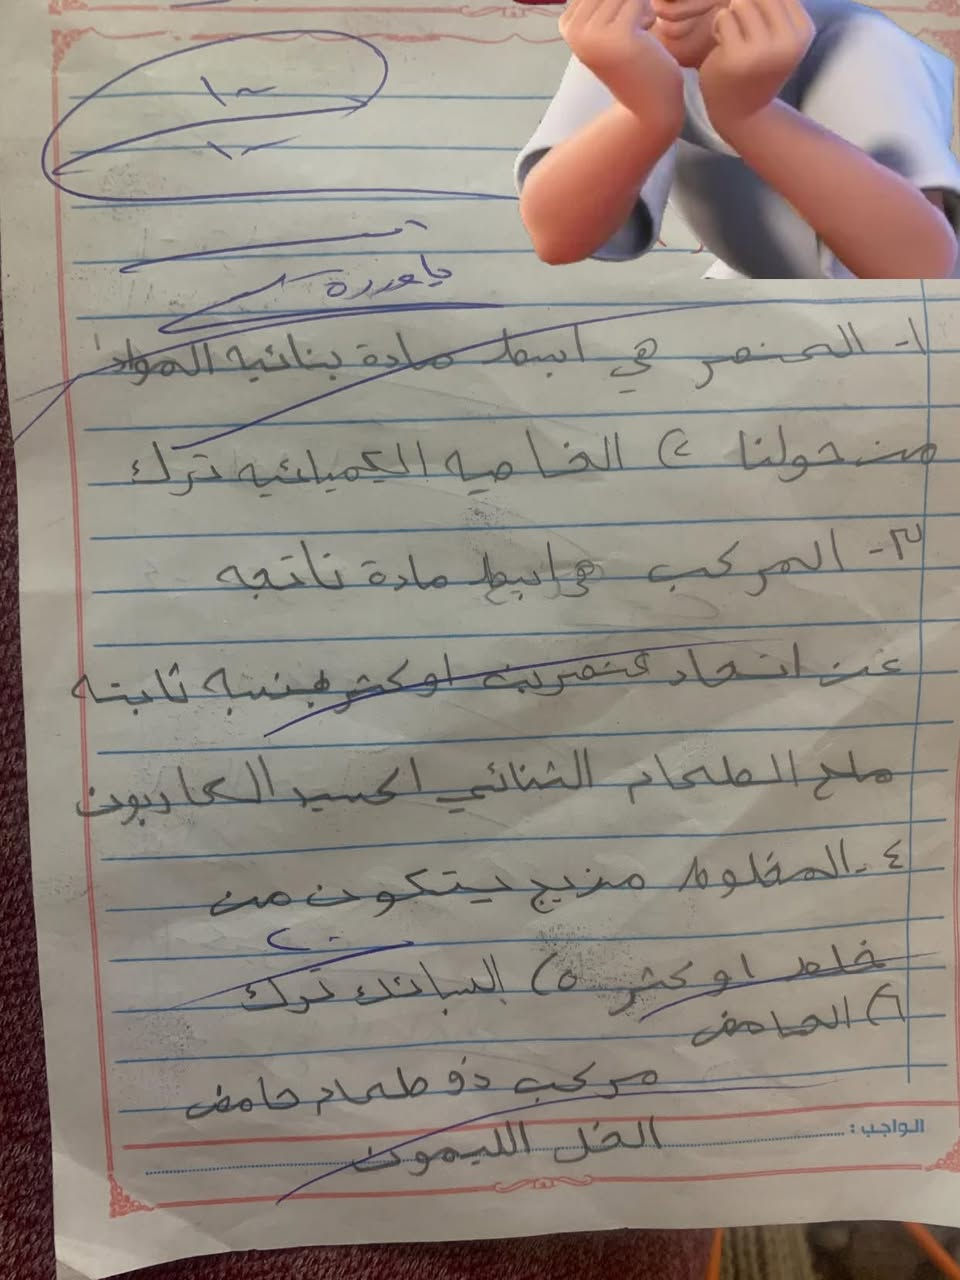 ١٠
١٠
١- العنصر هي ابسط مادة بنائيه المواد
من حولنا ٢) الخاصيه الكميائيه ترك
٣- المركب هي ابسط مادة ناتجه
عن اتحاد عنصرين او كثر بنسبه ثابته
ملح الطعام الثنائي اكسيد الكاربون
٤- المخلوط مزيج يتكون من
خلط او كثر ٥) السائك ترك
٦) الحامض
مركب ذو طعام حامض
الخل الليمون
الواجب: